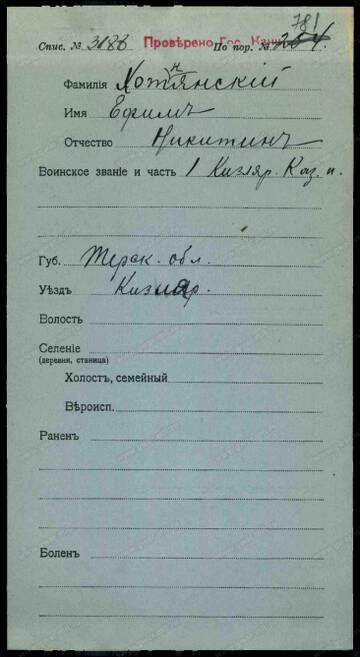 781
Спис. № 3188 Провѣрено Гос. По пор. № 204
н
Фамилія Хотянскій
Имя Ефимъ
Отчество Никитинъ
Воинское званіе и часть 1 Кизляр. Каз. п.
Губ. Терск. обл.
Уѣздъ Кизляр.
Волость
Селеніе
(деревня, станица)
Холостъ, семейный
Вѣроисп.
Раненъ
Боленъ